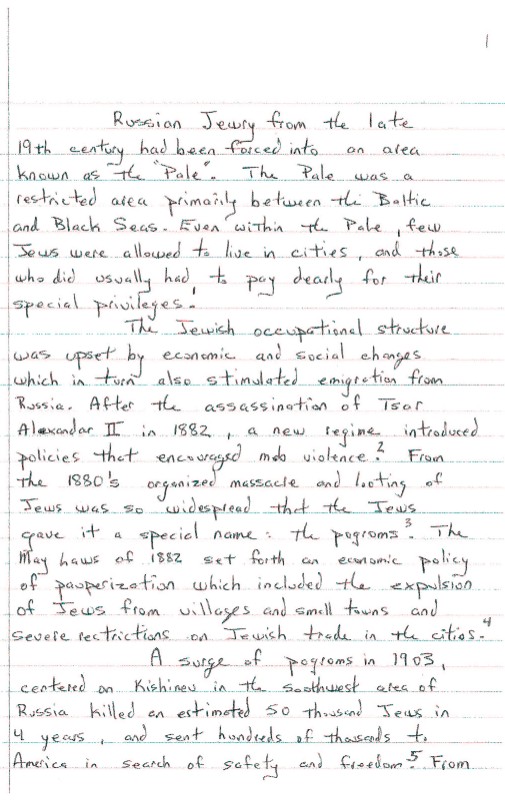 1
Russian Jewry from the late
19th century had been forced into an area
known as "the "Pale". The Pale was a
restricted area primarily between the Baltic
and Black Seas. Even within the Pale, few
Jews were allowed to live in cities, and those
who did usually had to pay dearly for their
special privileges.1
The Jewish occupational structure
was upset by economic and social changes
which in turn also stimulated emigration from
Russia. After the assassination of Tsar
Alexandar II in 1882, a new regime introduced
policies that encouraged mob violence.2 From
the 1880's organized massacle and looting of
Jews was so widespread that the Jews
gave it a special name: the pogroms.3 The
May Laws of 1882 set forth an economic policy
of pauperization which included the expulsion
of Jews from villages and small towns and
severe rectrictions on Jewish trade in the cities.4
A surge of pogroms in 1903,
centered on Kishinev in the southwest area of
Russia killed an estimated 50 thousand Jews in
4 years, and sent hundreds of thousands to
America in search of safety and freedom.5 From